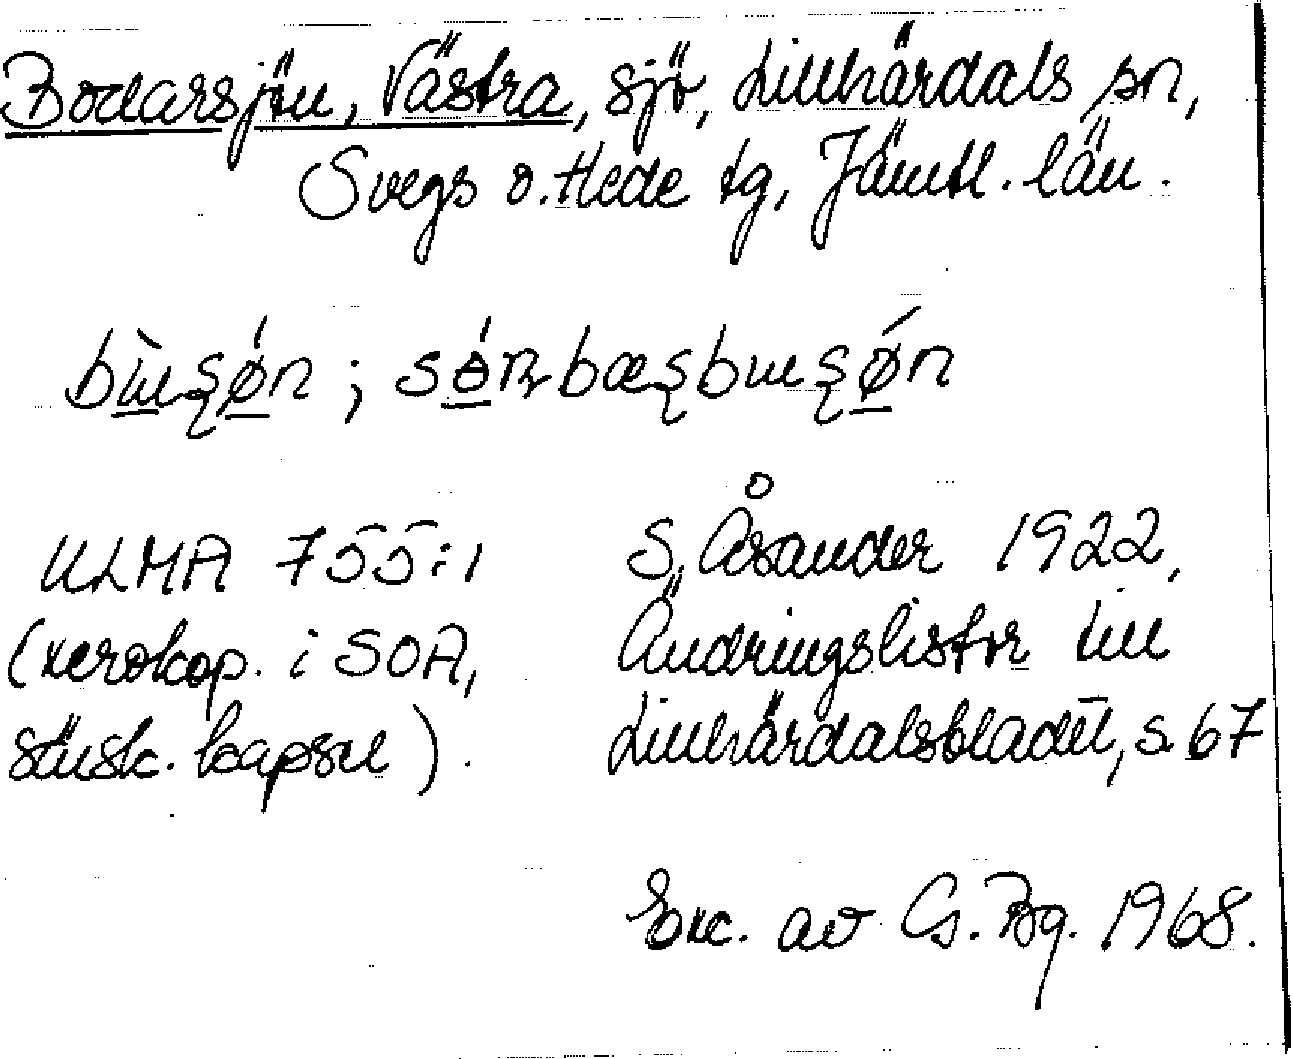 Bodarsjön, Västra, sjö, Lillhärdals sn,
Svegs o. Hede tg, Jämtl. län.
bɯ̀ʂǿn ; sǿɳbæʂbɯʂǿn
ULMA 755:1
(xerokop. i SOA,
särsk. kapsel).
S. Åsander 1922,
Ändringslistor till
Lillhärdalsbladet, s. 67
Exc. av G. Bg. 1968.